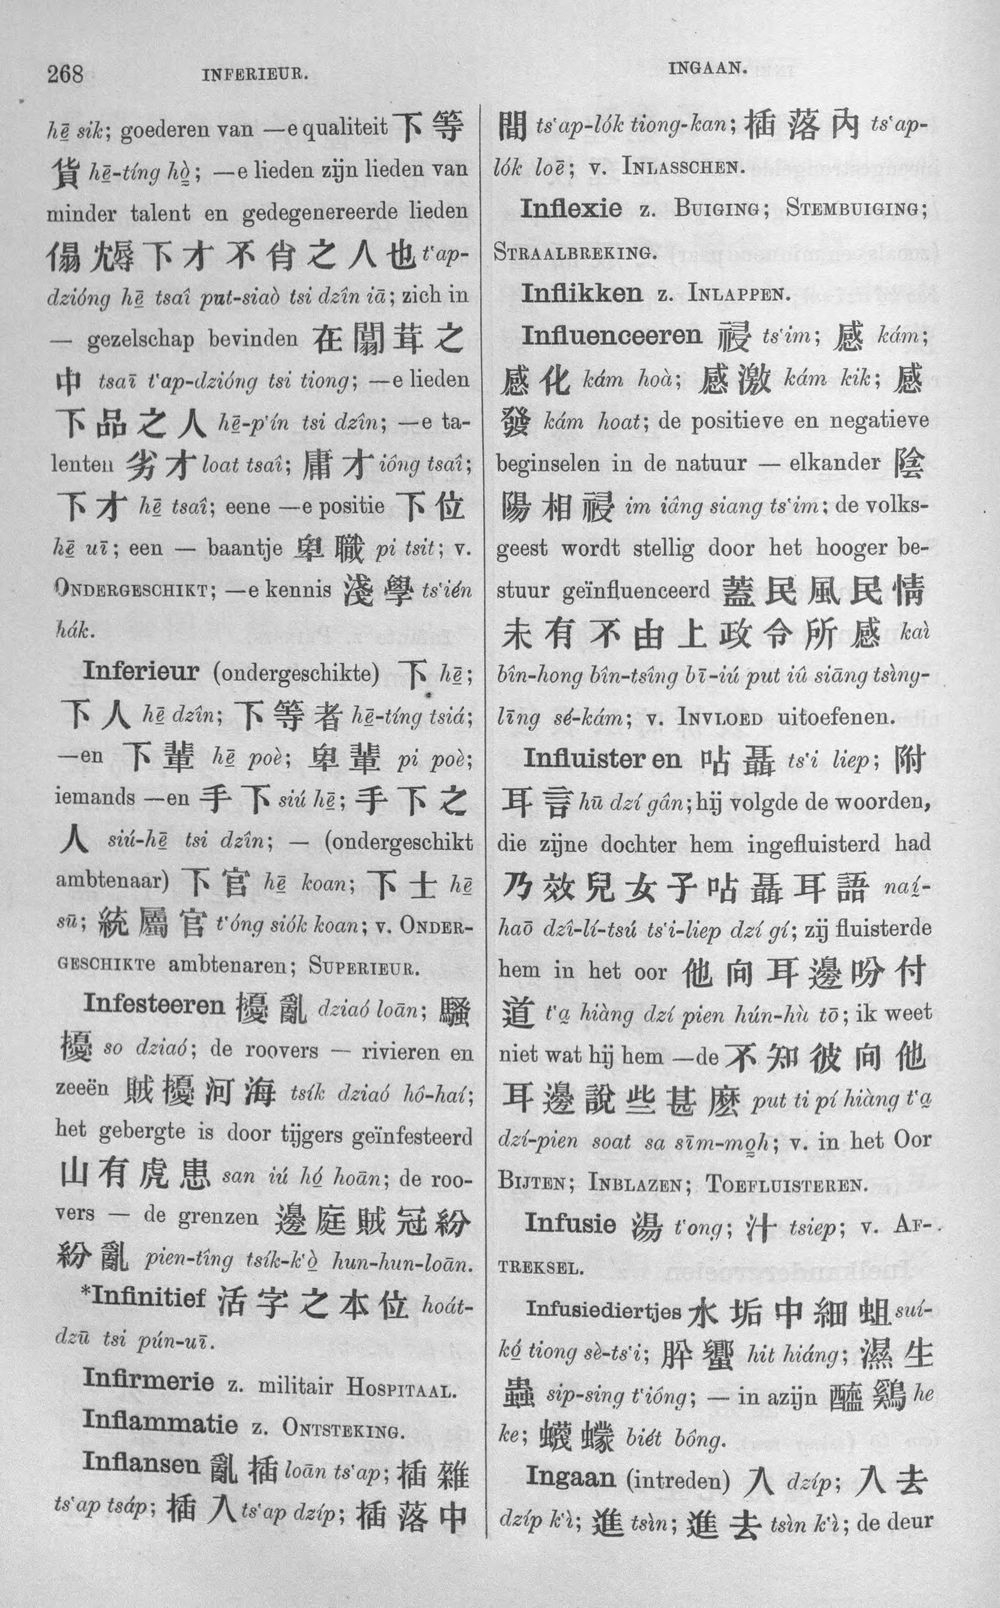 268 INFERIEUR.
INGAAN.
hē sik; goederen van —e qualiteit 下等
貨 hē-tíng hò; —e lieden zijn lieden van
minder talent en gedegenereerde lieden
傝㞞下才不肖之人也 t'ap-
dzióng hē tsaî put-siaò tsi dzîn iā; zich in
— gezelschap bevinden 在闒茸之
中 tsaī t'ap-dzióng tsi tiong; —e lieden
下品之人 hē-p'ín tsi dzîn; —e ta-
lenten 劣才 loat tsaî; 庸才 iông tsaî;
下才 hē tsaî; eene —e positie 下位
hē uī; een — baantje 卑職 pi tsit; v.
ONDERGESCHIKT; —e kennis 淺學 ts'ién
hák.
Inferieur (ondergeschikte) 下 hē;
下人 hē dzîn; 下等者 hē-tíng tsiá;
—en 下輩 hē poè; 卑輩 pi poè;
iemands —en 手下 siú hē; 手下之
人 siú-hē tsi dzîn; — (ondergeschikt
ambtenaar) 下官 hē koan; 下士 hē
sū; 統屬官 t'óng siók koan; v. ONDER-
GESCHIKTE ambtenaren; SUPERIEUR.
Infesteeren 擾亂 dziaó loān; 騷
擾 so dziaó; de roovers — rivieren en
zeeën 賊擾河海 tsík dziaó hô-haí;
het gebergte is door tijgers geïnfesteerd
山有虎患 san iú hó hoān; de roo-
vers — de grenzen 邊庭賊冦紛
紛亂 pien-tîng tsík-k'ò hun-hun-loān.
*Infinitief 活字之本位 hoát-
dzū tsi pún-uī.
Infirmerie z. militair HOSPITAAL.
Inflammatie z. ONTSTEKING.
Inflansen 亂插 loān ts'ap; 插雜
ts'ap tsáp; 插入 ts'ap dzíp; 插落中
間 ts'ap-lók tiong-kan; 插落內 ts'ap-
lók loē; v. INLASSCHEN.
Inflexie z. BUIGING; STEMBUIGING;
STRAALBREKING.
Inflikken z. INLAPPEN.
Influenceeren 祲 ts'im; 感 kám;
感化 kám hoà; 感激 kám kik; 感
發 kám hoat; de positieve en negatieve
beginselen in de natuur — elkander 陰
陽相祲 im iâng siang ts'im; de volks-
geest wordt stellig door het hooger be-
stuur geïnfluenceerd 蓋民風民情
未有不由上政令所感 kaì
bîn-hong bîn-tsîng bī-iú put iû siāng tsìng-
līng sé-kám; v. INVLOED uitoefenen.
Influisteren 呫聶 ts'i liep; 附
耳言 hū dzí gân; hij volgde de woorden,
die zijne dochter hem ingefluisterd had
乃效兒女子呫聶耳語 naí-
haō dzî-lí-tsú ts'i-liep dzí gí; zij fluisterde
hem in het oor 他向耳邊吩付
道 t'a hiàng dzí pien hún-hù tō; ik weet
niet wat hij hem —de 不知彼向他
耳邊說些甚麽 put ti pí hiàng t'a
dzí-pien soat sa sīm-moh; v. in het OOR
BIJTEN; INBLAZEN; TOEFLUISTEREN.
Infusie 湯 t'ong; 汁 tsiep; v. AF-
TREKSEL.
Infusiediertjes 水垢中細蛆 suí-
kó tiong sè-ts'i; 肸蠁 hit hiáng; 濕生
蟲 sip-sing t'ióng; — in azijn 醯鷄 he
ke; 蠛蠓 biét bông.
Ingaan (intreden) 入 dzíp; 入去
dzíp k'ì; 進 tsìn; 進去 tsìn k'ì; de deur